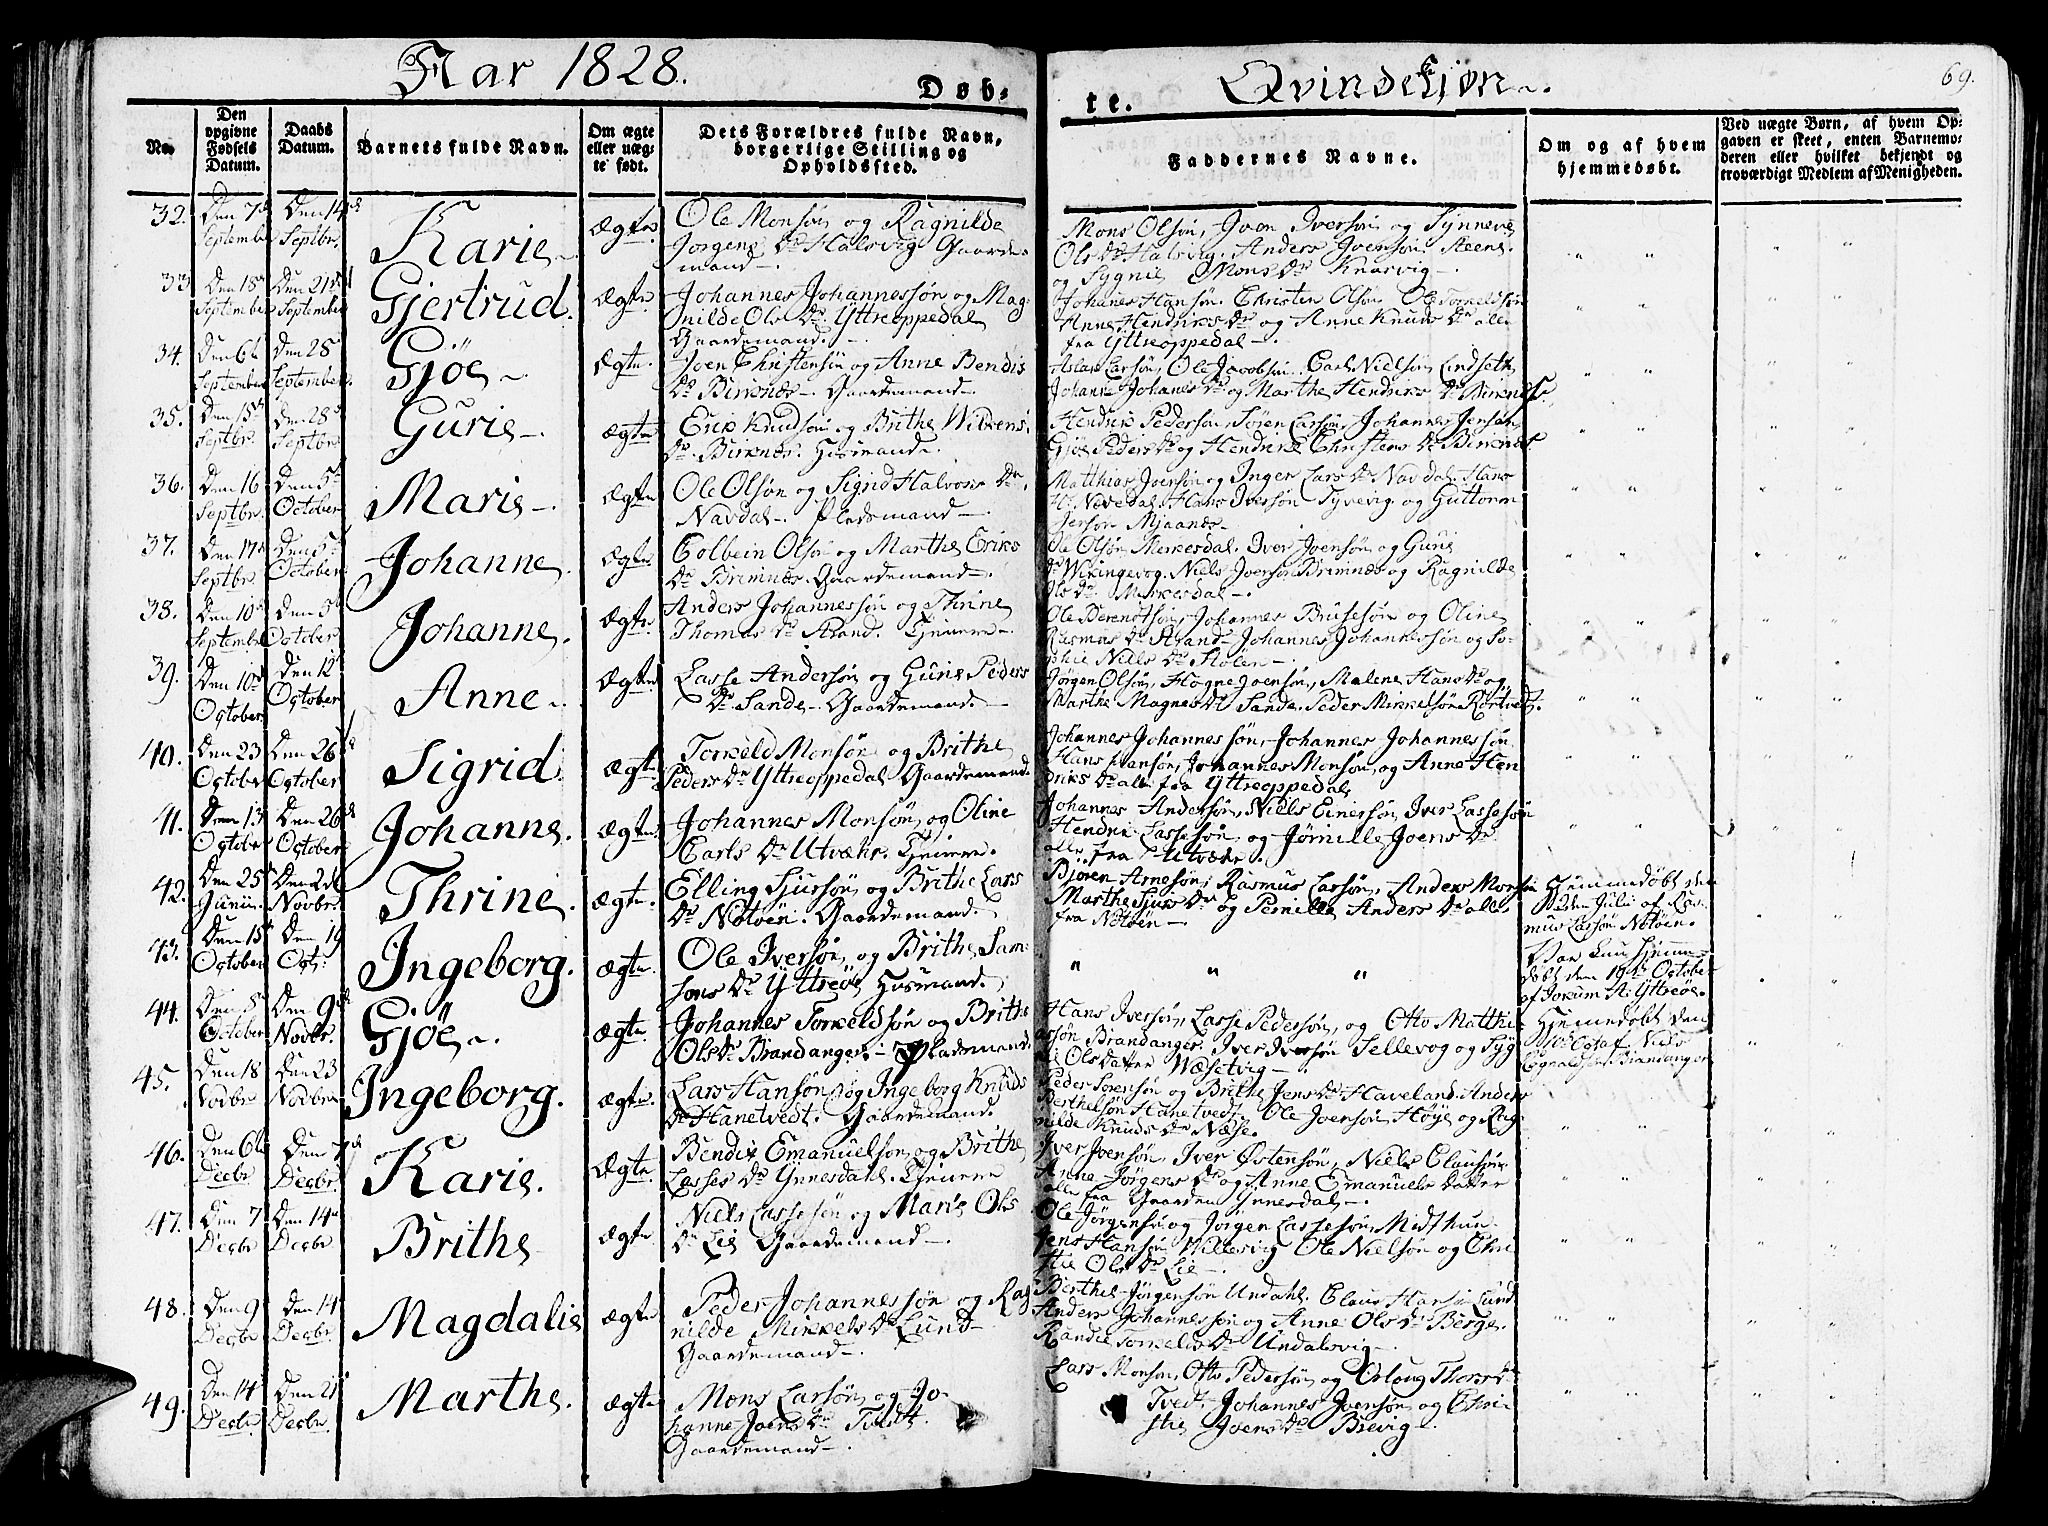 Aar 1828.
Døb-
te.
Qvindekjøn.
69.
No.
Den opgivne Fødsels Datum.
Daabs Datum.
Barnets fulde Navn.
Om ægte eller uægte født.
Dets Forældres fulde Navn, borgerlige Stilling og Opholdssted.
Faddernes Navne.
Om og af hvem hjemmedøbt.
Ved uægte Børn, af hvem Opgaven er skeet, enten Barnemoderen eller hvilket bekjendt og troværdigt Medlem af Menigheden.
32. Den 7de September
Den 14de Septbr.
Karie
Ægte
Ole Monsøn og Ragnilde
Jørgens Dr Halsvig Gaarde-
mand
Mons Olsøn, Joen Iversøn og Synneve
Ols Dr Halsvig. Anders Joensøn Steene.
og Sygnie Mons Dr Knarvig
33 Den 18 September
Den 21 September
Gjertrud
Ægte
Johannes Johannessøn og Mag-
nilde Ols Dr Yttreoppedal
Gaardemand.
Johanes Hansøn. Christen Olsøn Ole Torkeldsøn
Anne Hendriks Dr og Anne Knuds Dr alle
fra Yttreoppedal
34. Den 6te September
Den 28 September
Gjöe
Ægte
Joen Christensøn og Anne Bendis
Dr Birknæs. Gaardemand
Aslak Larsøn, Ole Jacobsøn. Carl Nielsøn Lindseth
Johanne Johanes Dr og Marthe Hendriks Dr Birknæs.
35. Den 15 Septbr.
Den 28 Septbr.
Gurie
Ægte
Erik Knudsøn og Brithe Wilkens
Dr Birknæs. Husmand.
Hendrik Pedersøn, Søren Larsøn, Johannes Jensøn
Gjöe Peders Dr og Hendrikke Christens Dr Birknæs.
36. Den 16 Septbr.
Den 5 October
Marie
Ægte
Ole Olsøn og Sigrid Halvors Dr
Navdal. Pladsmand
Matthias Joensøn og Inger Lars Dr Navdal. Hans
H. Nevedal. Hans Iversøn Tyvevig og Guttorm
Jersøn Mjaanæs
37. Den 17 Septbr.
Den 5 October.
Johanne
Ægte
Colbein Olsøn og Marthe Eriks
Dr Brimnæs. Gaardemand
Ole Olsøn Mirkesdal. Iver Joensøn og Gurie
Dr Wikingevog. Niels Joensøn Brimnæs og Ragnilde
Ols Dr Mirkesdal
38. Den 10 September
Den 5 October
Johanne.
Ægte.
Anders Johannessøn og Thrine
Thomas Dr Strand. Tjenere
Ole Berentsøn, Johannes Brusesøn og Oline
Rasmus Dr Strand. Johannes Johannessøn og So-
phie Niels Dr Stolen
39. Den 10 October
Den 12 October
Anne
Ægte
Lasse Andersøn og Gurie Peders
Dr Sande. Gaardemand.
Jørgen Olsøn, Hogne Joensøn, Malene Hans Dr og
Marthe Magnes Dr Sande. Peder Mikkelsøn Rørtvedt.
40. Den 23 October
Den 26 October
Sigrid
Ægte
Torkeld Monsøn og Brithe
Peders Dr Yttreoppedal Gaardemand.
Johannes Johannessøn, Johannes Johannessøn
Hans Evensøn, Johannes Monsøn, og Anne Hen
driks Dr alle fra Yttreoppedal
41. Den 13 October
Den 26 October
Johanne.
Ægte.
Johannes Monsøn og Oline
Carls Dr Utvæhr. Tjenere.
Johannes Andersøn, Niels Einersøn, Iver Lassesøn
Hendrik Lassesøn, og Jørnille Joens Dr
alle fra Utvæhr.
42. Den 25 Junii.
Den 2de Novbr.
Thrine
Ægte.
Elling Sjursøn og Brithe Lars
Dr Notøen. Gaardemand.
Bjøren Arnesøn, Rasmus Larsøn, Anders Monsøn
Marthe Sjurs Dr og Pernille Anders Dr alle
fra Notøen
Hjemmedøbt den
12ten Julii af Ras-
mus Larsøn Notøen.
43. Den 15 October
Den 19 Oct:
Ingeborg.
Ægte.
Ole Iversøn og Brithe Sam-
sons Dr Yttreöe Husmand.
Var kun hjemme-
døbt den 19de October
af Jokum A. Yttreöe.
44. Den 5 October
Den 9de Novbr.
Gjöe
Ægte
Johannes Torkeldsøn og Brithe
Ols Dr Brandanger. Pladsmand
Hans Iversøn, Lasse Pedersøn, og Otto Matthi-
asøn Brandanger. Iver Iversøn Sellevog og Syg
nie Ols Datter Wæsetvig
Hjemmedøbt den
10de Oct af Niels
Rognaldsøn Brandanger
45. Den 18 Novbr
Den 23 Novbr
Ingeborg.
Ægte.
Lars Hansøn og Ingeborg Knuds
Dr Hanetvedt. Gaardemand.
Peder Sørensøn og Brithe Jens Dr Haveland. Anders
Berthelsøn Hanetvedt. Ole Joensøn Høye og Rag-
nilde Knuds Dr Næse.
46. Den 6te Decbr
Den 7de Decbr.
Karie.
Ægte.
Bendix Emanuelsøn og Brithe
Lasses Dr Ynnesdahl. Tjenere
Iver Joensøn, Iver Østensøn, Niels Clausøn
Anne Jørgens Dr og Anne Emanuels Datter
alle fra Gaarden Ynnesdal
47. Den 7 Decbr
Den 14 Decbr
Brithe
Ægte.
Niels Lassesøn og Marie Ols
Dr Lie Gaardemand
Ole Jørgensøn og Jørgen Lassesøn, Midthun
Jens Hansøn Willesvig Ole Nielsøn og Chri
stie Ols Dr Lie
48. Den 9 Decbr
Den 14 Decbr.
Magdalie
Ægte
Peder Johannessøn og Rag
nilde Mikkels Dr Lund
Gaardemand
Berthel Jørgensøn Undahl. Claus Hansøn Lund
Anders Johannessøn og Anne Ols Dr Berge.
Randie Torkelds Dr Undalsvig
49. Den 14 Decbr
Den 21 Decbr.
Marthe
Ægte
Mons Larsøn og Jo-
hanne Joens Dr Tvedt.
Gaardemand
Lars Monsøn, Otto Pedersøn og Orloug Thores Dr
Tvedt. Johannes Joensøn og Chri-
stie Joens Dr Brevig